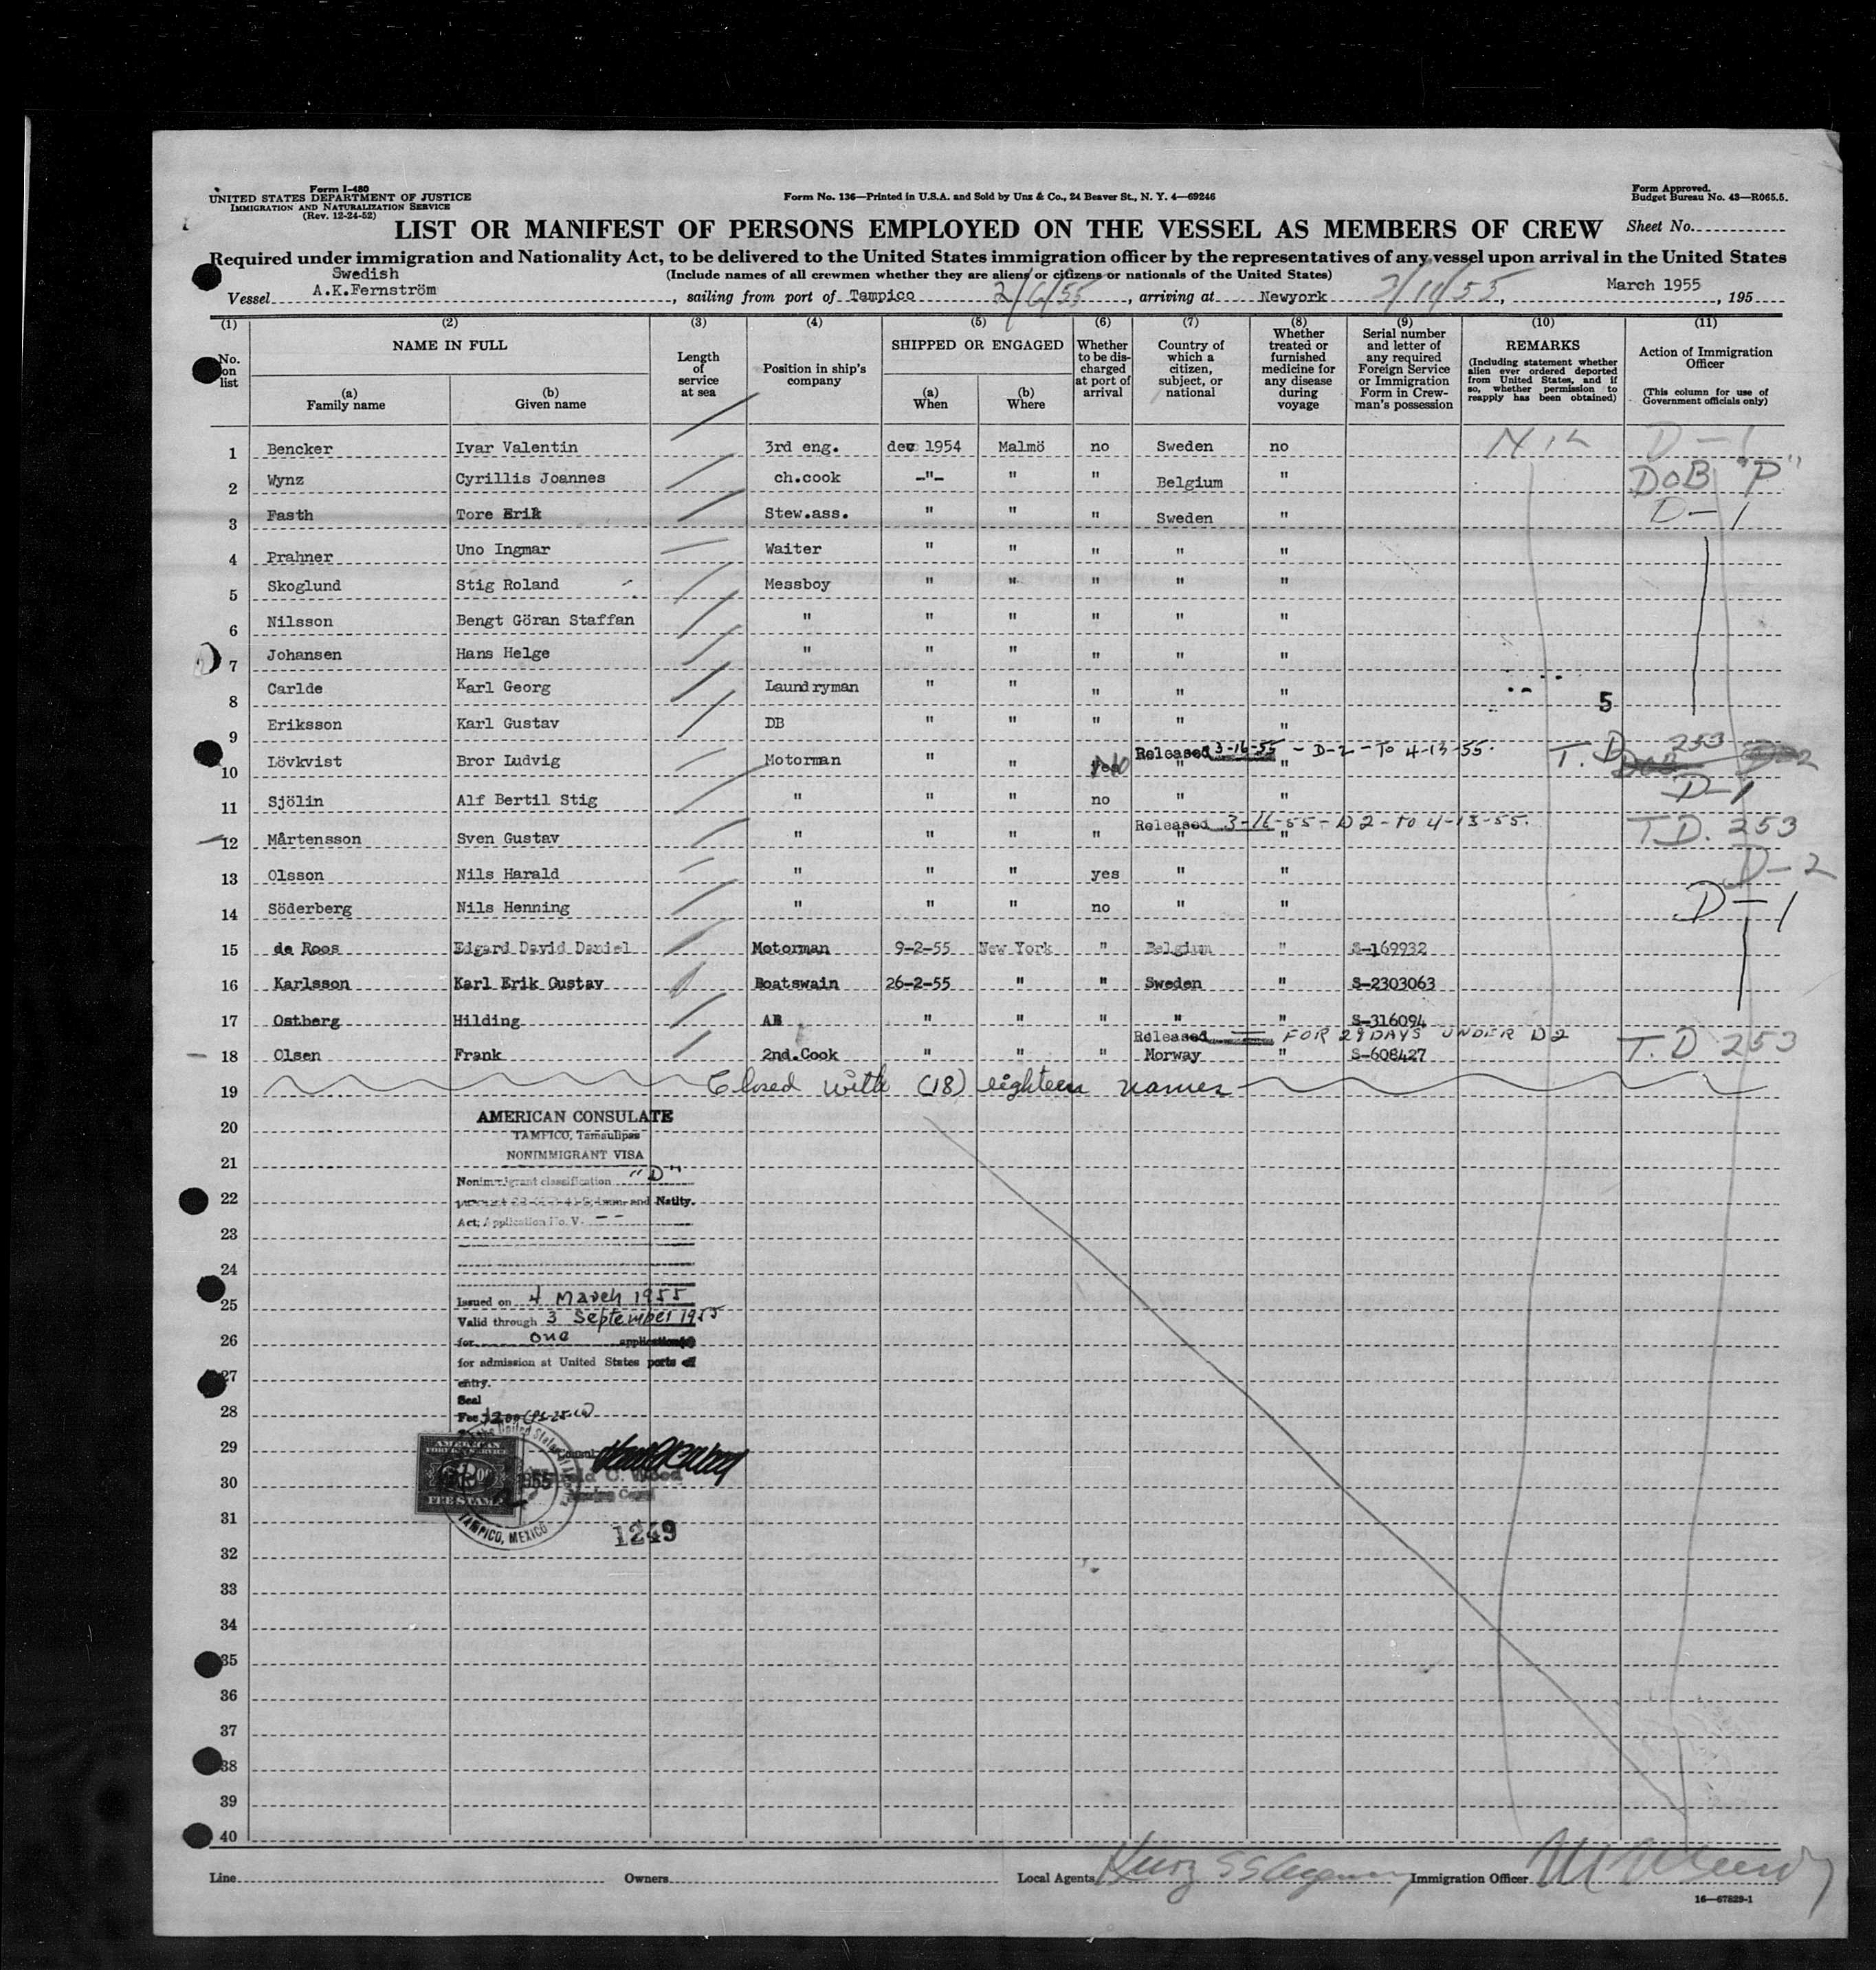 Form I-480
UNITED STATES DEPARTMENT OF JUSTICE
IMMIGRATION AND NATURALIZATION SERVICE
(Rev. 12-24-52)
Form No. 136—Printed in U.S.A. and Sold by Unz & Co., 24 Beaver St., N. Y. 4—69246
Form Approved.
Budget Bureau No. 43—R065.5.
LIST OR MANIFEST OF PERSONS EMPLOYED ON THE VESSEL AS MEMBERS OF CREW
Sheet No.
Required under immigration and Nationality Act, to be delivered to the United States immigration officer by the representatives of any vessel upon arrival in the United States
(Include names of all crewmen whether they are aliens or citizens or nationals of the United States)
Swedish
Vessel A.K.Fernström, sailing from port of Tampico 2/6/55, arriving at Newyork 3/11/55, March 1955, 195
(1) (2) (3) (4) (5) (6) (7) (8) (9) (10) (11)
No. on list
NAME IN FULL
(a) Family name
(b) Given name
Length of service at sea
Position in ship's company
SHIPPED OR ENGAGED
(a) When
(b) Where
Whether to be discharged at port of arrival
Country of which a citizen, subject, or national
Whether treated or furnished medicine for any disease during voyage
Serial number and letter of any required Foreign Service or Immigration Form in Crewman's possession
REMARKS
(Including statement whether alien ever ordered deported from United States, and if so, whether permission to reapply has been obtained)
Action of Immigration Officer
(This column for use of Government officials only)
1 Bencker Ivar Valentin 3rd eng. dec 1954 Malmö no Sweden no D-1
2 Wynz Cyrillis Joannes ch.cook -"- " " Belgium " DOB "P"
3 Fasth Tore Erik Stew.ass. " " " Sweden " D-1
4 Prahner Uno Ingmar Waiter " " " " "
5 Skoglund Stig Roland Messboy " " " " "
6 Nilsson Bengt Göran Staffan " " " " " "
7 Johansen Hans Helge " " " " " "
8 Carlde Karl Georg Laundryman " " " " " 5
9 Eriksson Karl Gustav DB " " " " "
Released 3-16-55 - D-2 - TO 4-13-55. T. D 253
10 Lövkvist Bror Ludvig Motorman " " No " "
11 Sjölin Alf Bertil Stig " " " no " " D-1
Released 3-16-55 - D 2 - TO 4-13-55.
12 Mårtensson Sven Gustav " " " " " " T.D. 253
13 Olsson Nils Harald " " " yes " " D-2
14 Söderberg Nils Henning " " " no " " D-1
15 de Roos Edgard David Daniel Motorman 9-2-55 New York " Belgium " S-169932
16 Karlsson Karl Erik Gustav Boatswain 26-2-55 " " Sweden " S-2303063
17 Ostberg Hilding AB " " " " " S-316094
Released FOR 29 DAYS UNDER D2
18 Olsen Frank 2nd.Cook " " " Norway " S-608427 T. D 253
19 Closed with (18) eighteen names
20
AMERICAN CONSULATE
TAMPICO, Tamaulipas
21
NONIMMIGRANT VISA
Nonimmigrant classification "D"
22
and Natlty.
Act; Application No. V- --
23
24
25
Issued on 4 March 1955
Valid through 3 September 1955
26
for one application(s)
for admission at United States ports of
27
entry.
Seal
28
29
AMERICAN
FOREIGN SERVICE
FEE STAMP
Consul
30
C. Wood
1955
31
TAMPICO, MEXICO
1249
32
33
34
35
36
37
38
39
40
Line
Owners
Local Agents Kurz SS Agency
Immigration Officer
16—67829-1